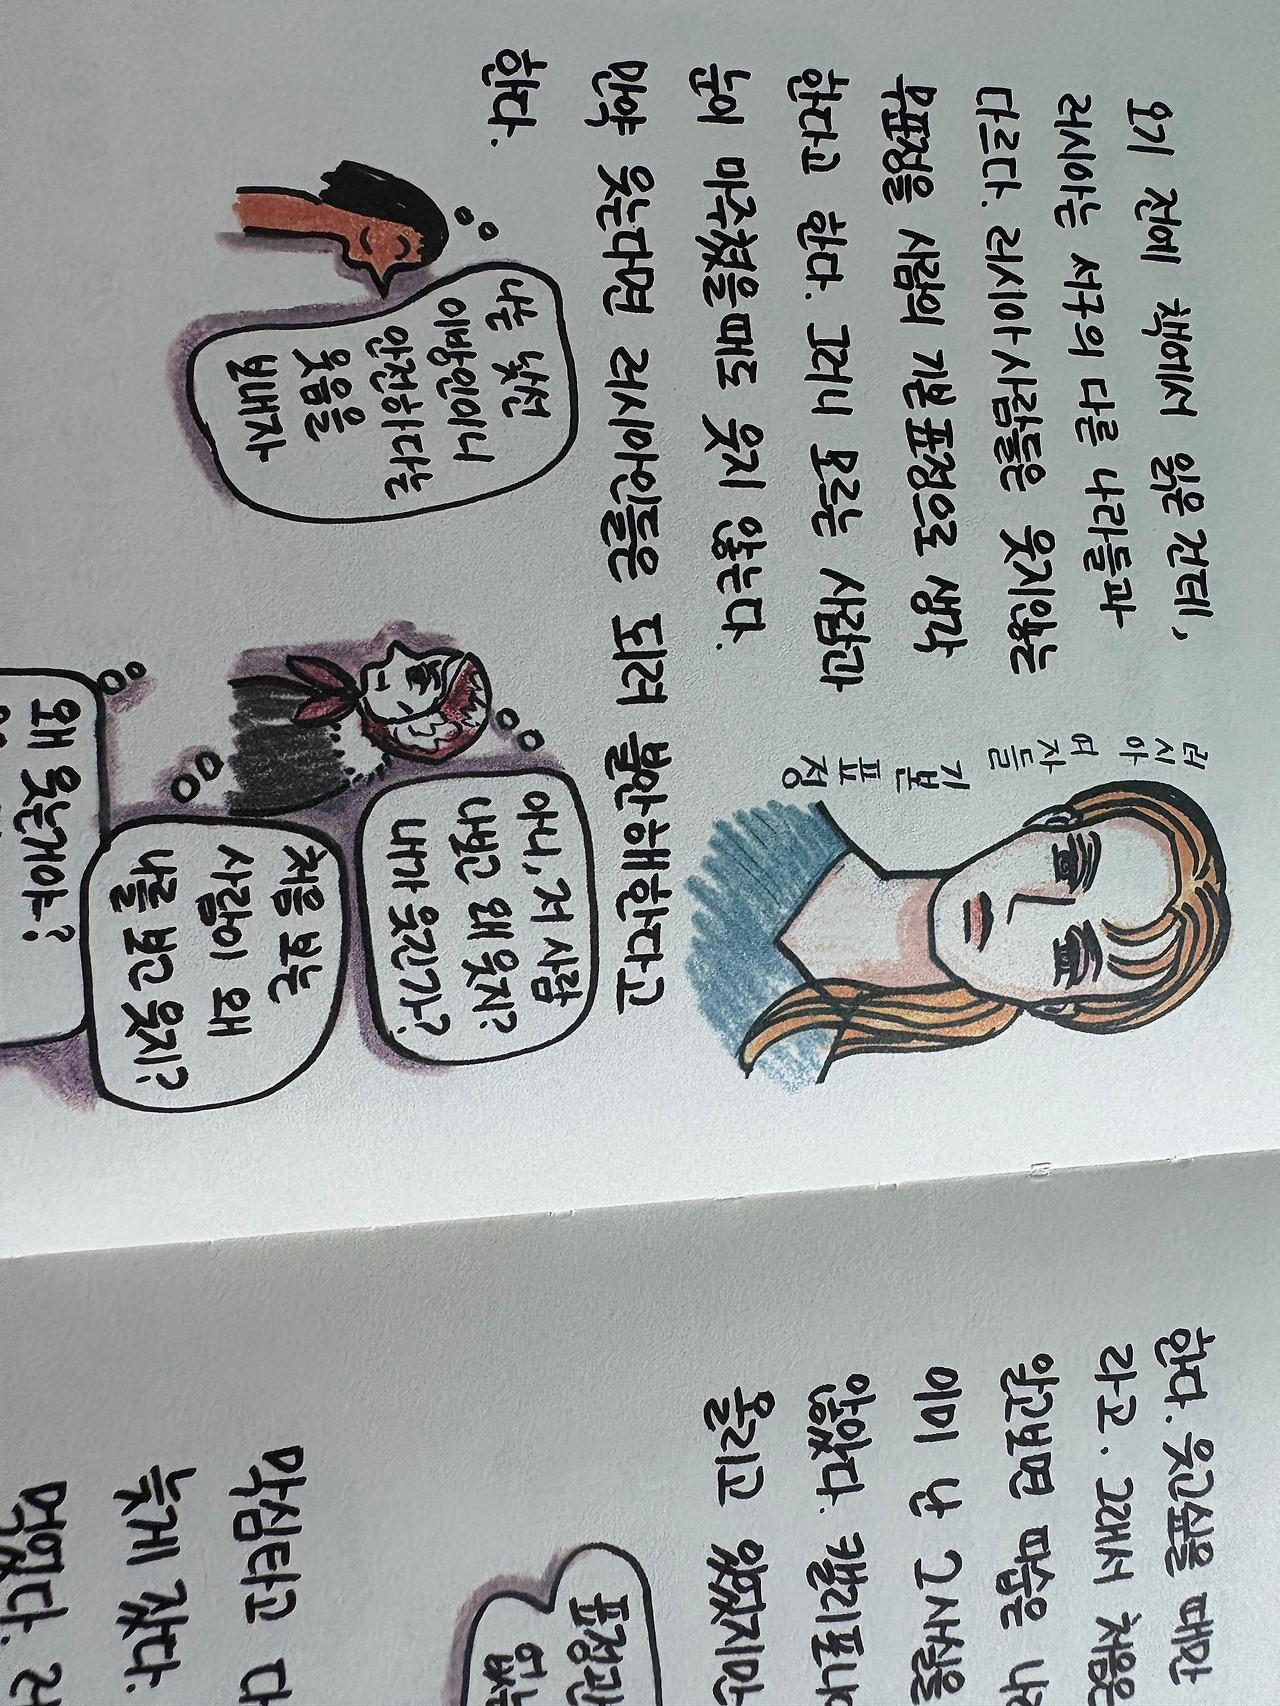 오기 전에 책에서 읽은 건데,
러시아는 서구의 다른 나라들과
다르다. 러시아 사람들은 웃지않는
무표정을 사람의 기본 표정으로 생각
한다고 한다. 그러니 모르는 사람과
눈이 마주쳤을때도 웃지 않는다.
만약 웃는다면 러시아인들은 되려 불안해한다고
한다.
러시아
여자들
기본
표정
나는 낯선
이방인이니
안전하다는
웃음을
보내자
아니, 저 사람
날보고 왜 웃지?
내가 웃긴가?
처음 보는
사람이 왜
나를 보고 웃지?
왜 웃는거야?
한다. 웃고싶을 때만
라고. 그래서 처음은
알고보면 따습은
이미 난 그 사실을
않았다. 캘리포니아
올리고 있었지만
표정관
악심타고
늦게 갔다.